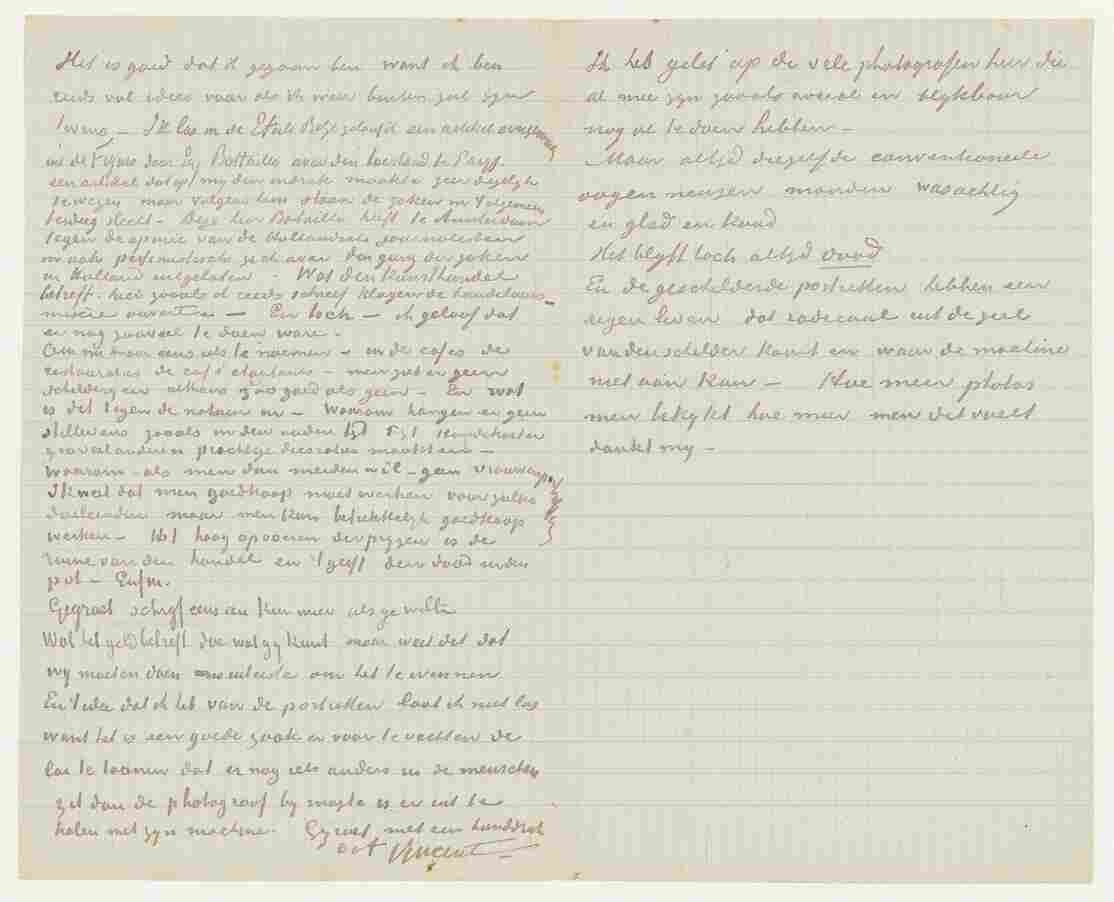 Het is goed dat ik gegaan ben want ik ben
reeds vol idees voor als ik weer buiten zal zyn
Tweng – Ik las in de Etoile Belge geloof ik een artikel
in de Figaro door Bataille over den toestand te Parys
een artikel dat op my den indruk maakte zeer degelyk
Deze heer Bataille heeft te Amsterdam
tegen de opinie van de Hollandsche journalisten
pessimistisch zich over den gang der zaken
in Holland uitgelaten – Wat den kunsthandel
betreft – hier zooals ik reeds schreef klagen de handelaars –
misère ouverte – En toch – ik geloof dat
er nog zooveel te doen ware –
Om nu maar eens iets te noemen – in de cafes de
restauraties de café chantants – men ziet er geen
schilderyen althans zóó goed als geen – En wat
is dat tegen de natuur in – Waarom hangen er geen
stillevens zooals in den ouden tyd Fyt Hondekoeter
zooveel anderen prachtige decoraties maakten –
waarom – als men dan meiden wil – geen vrouwenportretten
Ik weet dat men goedkoop moet werken voor zulke
doeleinden maar men kan betrekkelyk goedkoop
werken – Het hoog opvoeren der pryzen is de
ruine van den handel en 't geeft den dood in den
pot – Enfin.
Gegroet schryf eens en kun meer als ge wilt
Wat het geld betreft doe wat gy kunt maar weet dit dat
wy moeten doen ons uiterste om het te winnen
En 't idee dat ik heb van de portretten laat ik niet los
want het is een goede zaak er voor te vechten de
lui te toonen dat er nog iets anders in de menschen
zit dan de photograaf by magte is er uit te
halen met zyn machine. Gegroet met een handdruk
Vincent
Ik heb gelet op de vele photografen hier die
al mee zyn zooals overal en blykbaar
nog al te doen hebben –
Maar altyd diezelfde conventioneele
oogen neuzen monden wasachtig
en glad en koud
Het blyft toch altyd dood
En de geschilderde portretten hebben een
eigen leven dat radicaal uit de ziel
van den schilder komt en waar de machine
niet aan kan – Hoe meer photos
men bekykt hoe meer men dit voelt
dunkt my –